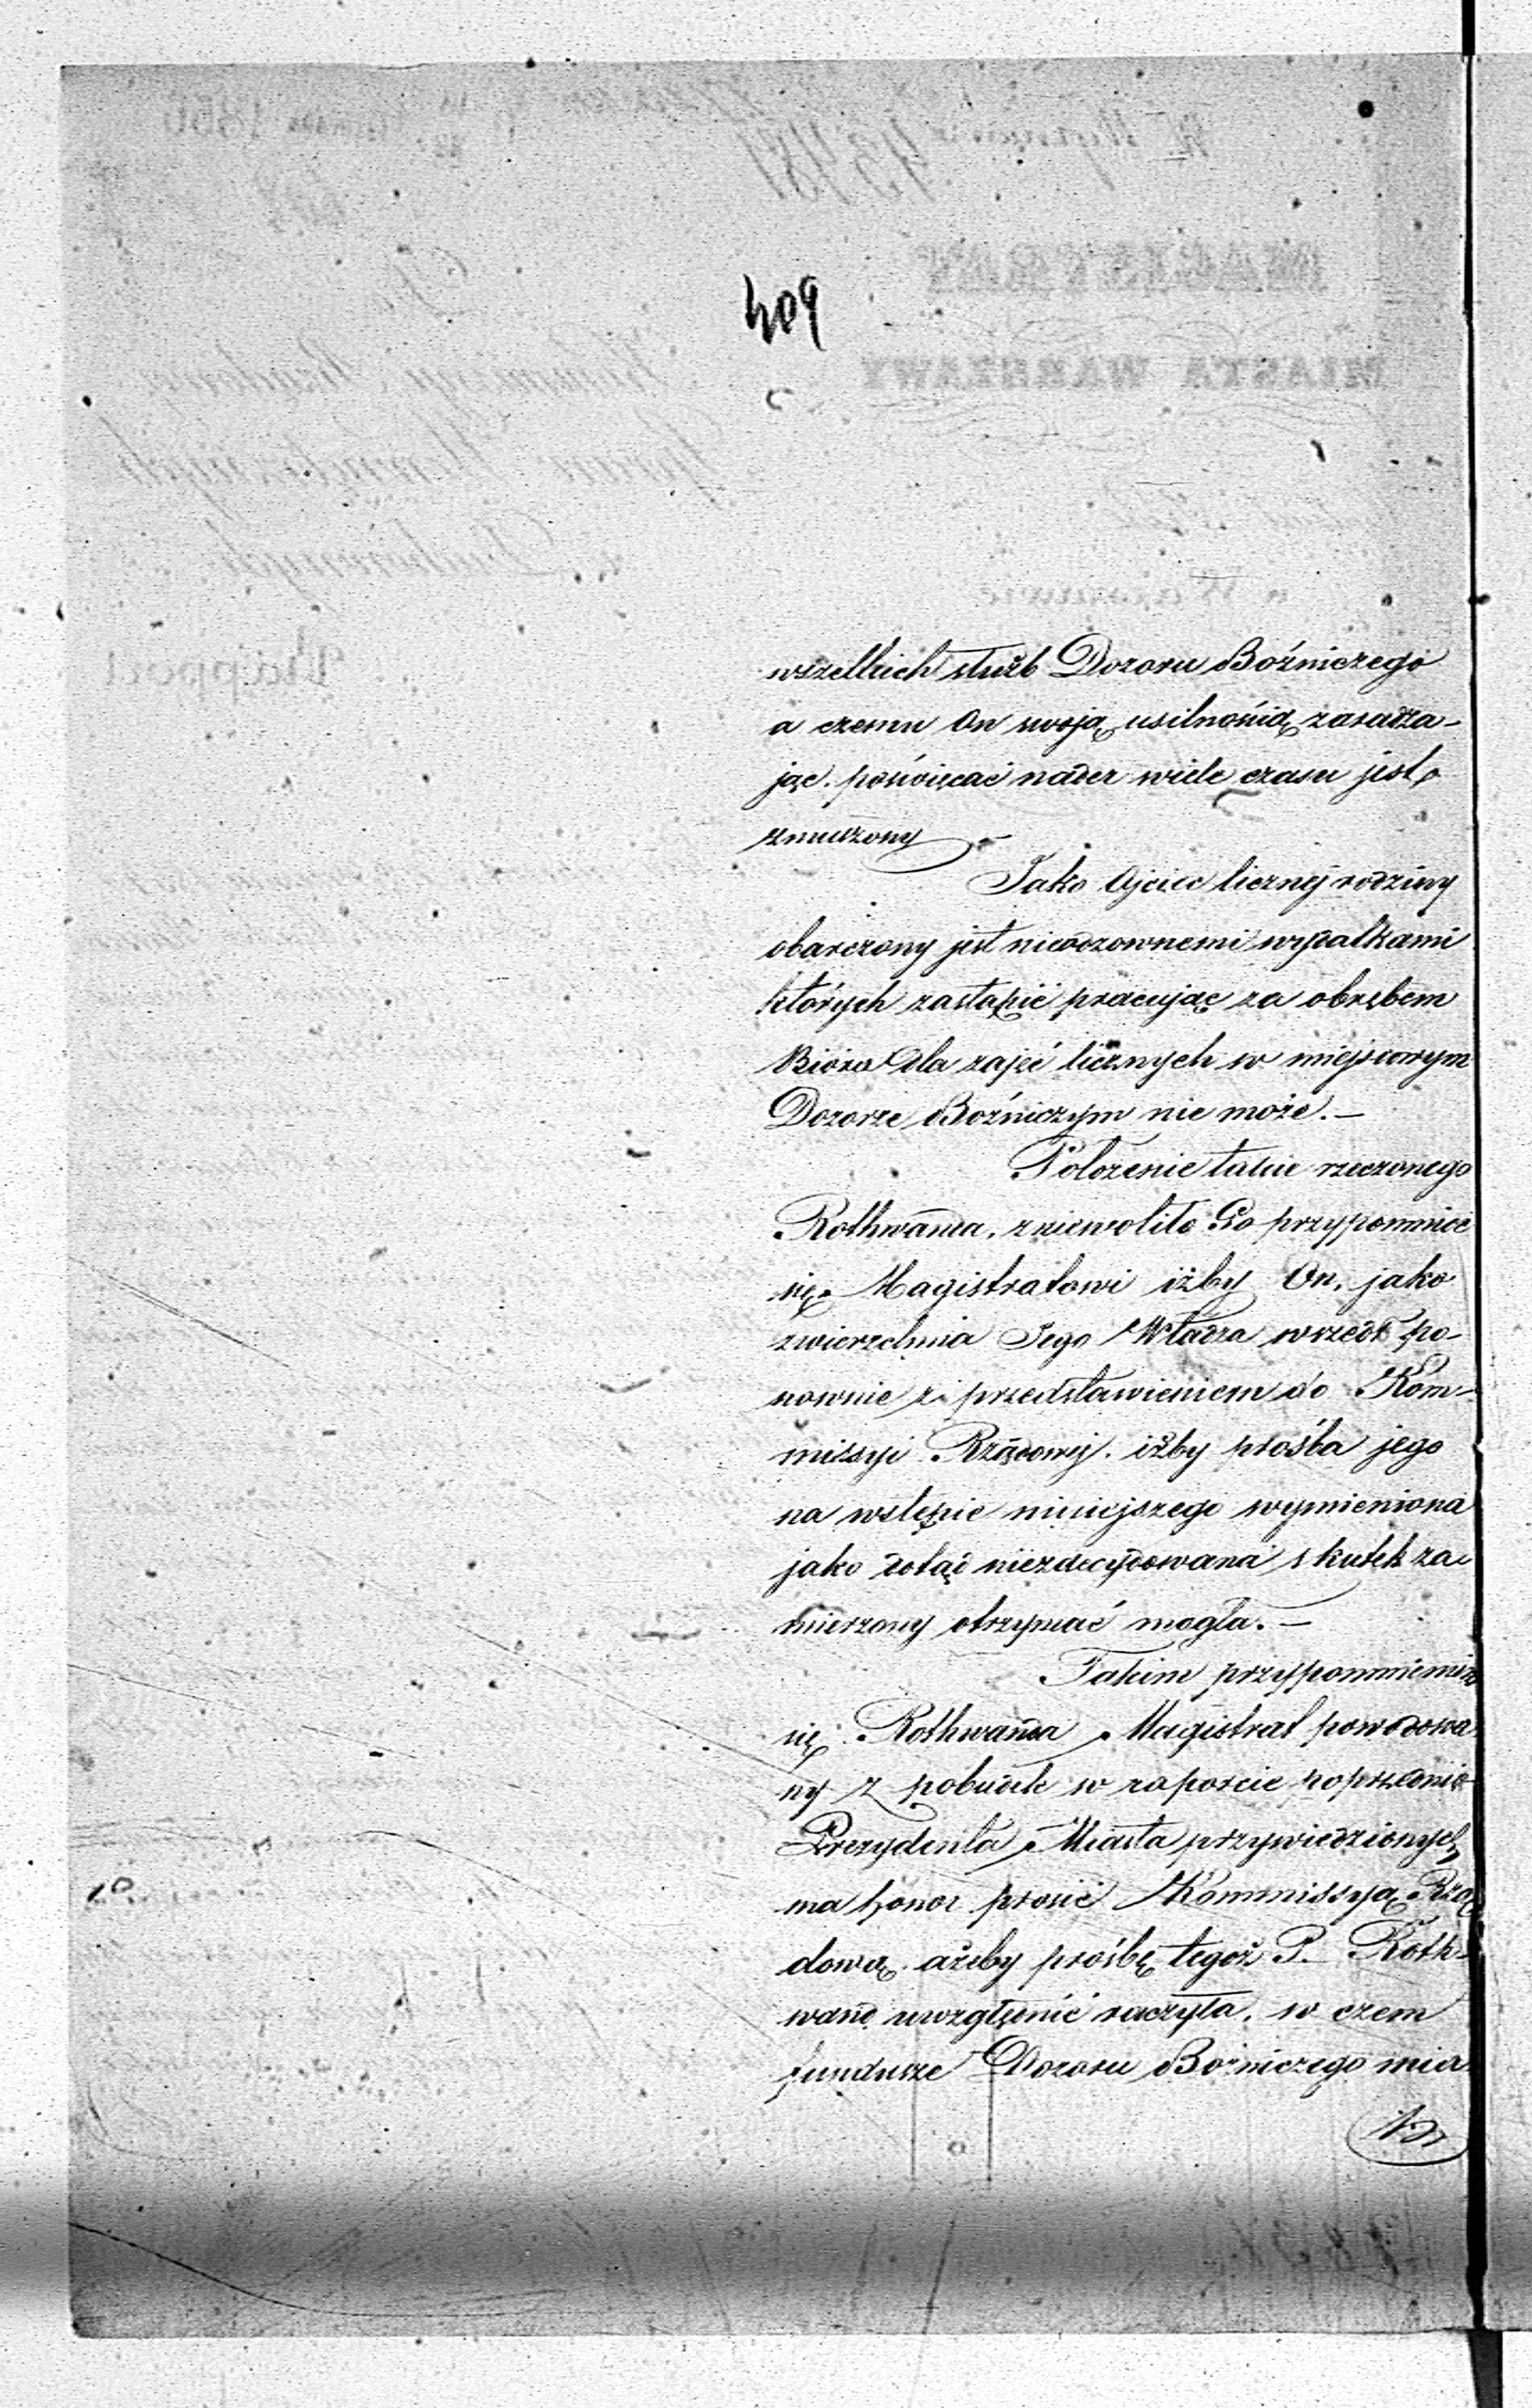 409
wszelkich służb Dozoru Bóżniczego
a czemu On swoją usilnością zasadza-
jąc. poświęcać nader wiele czasu jest
zmuszony –
Jako Ojciec licznej rodziny
obarczony jest nieodzownemi wydatkami
których zastąpić pracując za obrębem
Bióra dla zajęć licznych w miejscowym
Dozorze Bóżniczym nie może. –
Położenie takie rzeczonego
Rothwanda, zniewoliło Go przypomnieć
się Magistratowi iżby On, jako
zwierzchnia Jego Władza wszedł po-
nownie z przedstawieniem do Kom-
missyi Rządowej. iżby prośba jego
na wstępie niniejszego wymieniona
jako dotąd niezdecydowana skutek za-
mierzony otrzymać mogła. –
Takim przypomnieniem
się Rothwanda Magistrat powodowa-
ny z pobudek w raporcie poprzednio
Prezydenta Miasta przywiedzionych
ma honor prosić Kommissyą Rzą-
dową ażeby prośbę tegoż P. Roth-
wand uwzględnić raczyła, w czem
fundusze Dozoru Bóżniczego mia